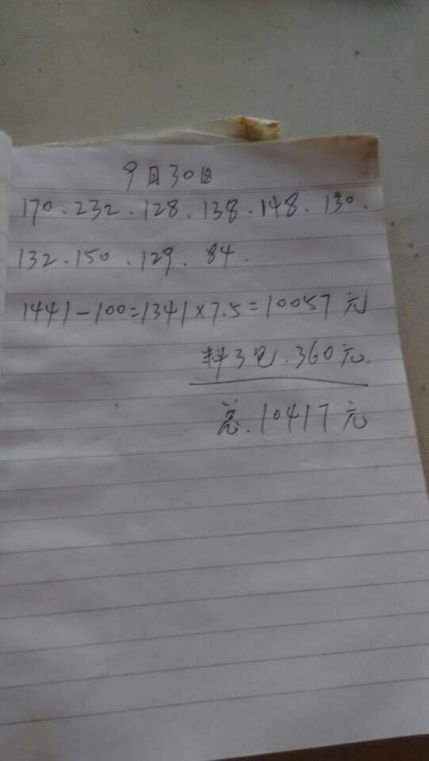 9月30日
170.232.128.138.148.130.
132.150.129.84.
1441-100=1341×7.5=10057元
料3包.360元.
总.10417元